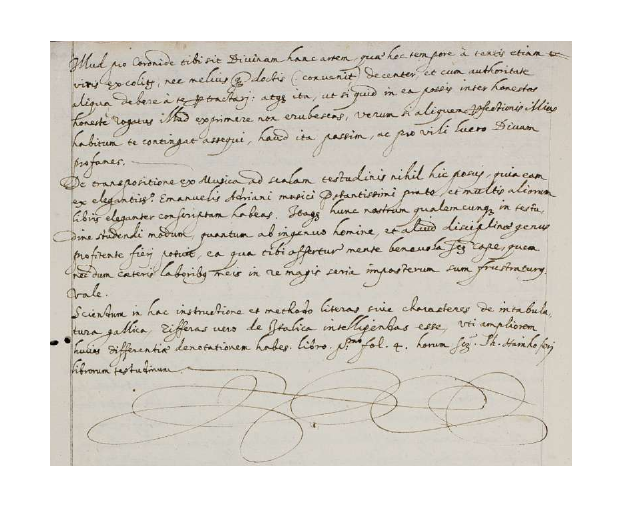 Illud pro Coronide tibi sit Divinam hanc artem, quae hoc tempore à tantis etiam
viris excolitʒ, nec melius doctis (convenit) decenter, et cum authoritate
aliqua debere à te ptractarj: atqʒ ita, ut si quid in ea possis inter honestos
honeste rogatus illud exprimere non erubescas, verum si aliquem pfectionis
habitum te contingat assequi, haud ita passim, ac pro vili lucro Divam
profanes.
De transpositione ex Musica ad scalam testudinis nihil hic posui, quia eam
ex elegantissᵒ. Emanuelis Adriani musici prato, et multis aliorum
libris eleganter conscriptam habeas. Itaqʒ hunc nostrum qualemcunqʒ in testu,
dine studendi modum, quantum ab ingenuo homine, et aliud disciplinae genus
profitente fierj potuit, ea qua tibi affertur mente benevola cape, quem
nec dum caeteris laboribqʒ meis in re magis seria imposterum sum frustraturqʒ
Vale.
Scientum in hac instructione et methodo literas sive characteres de intabula,
tura gallica, Zifferas vero de Italica intelligendas esse, uti ampliorem
huius differentiae denotationem habes. libro. pᵐᵒ fol. 4. horum Ph. Hainhoferj
librorum testudinum